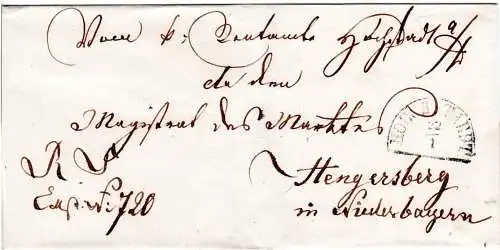 Vom k. Rentamte Höchstadt a/A
An den
Magistrat des Marktes
Hengersberg
in Niederbayern
R S
Exp. Nr. 720
12
1